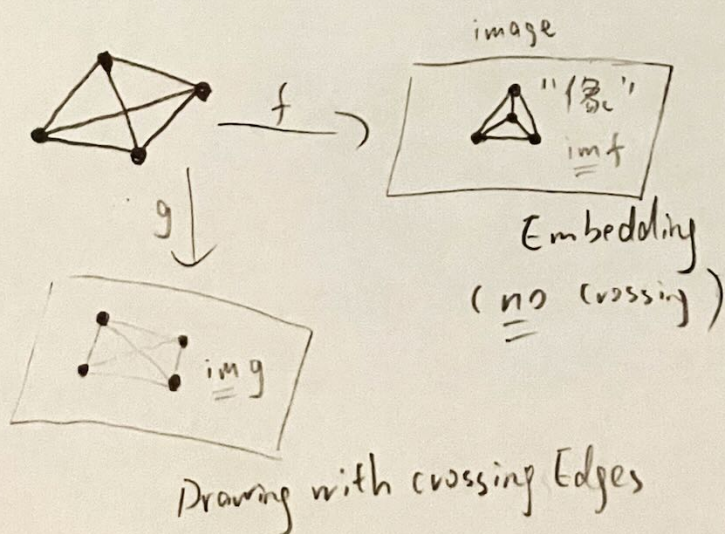 image
f
"像"
im f
g
Embedding
(no crossing)
im g
Drawing with crossing Edges